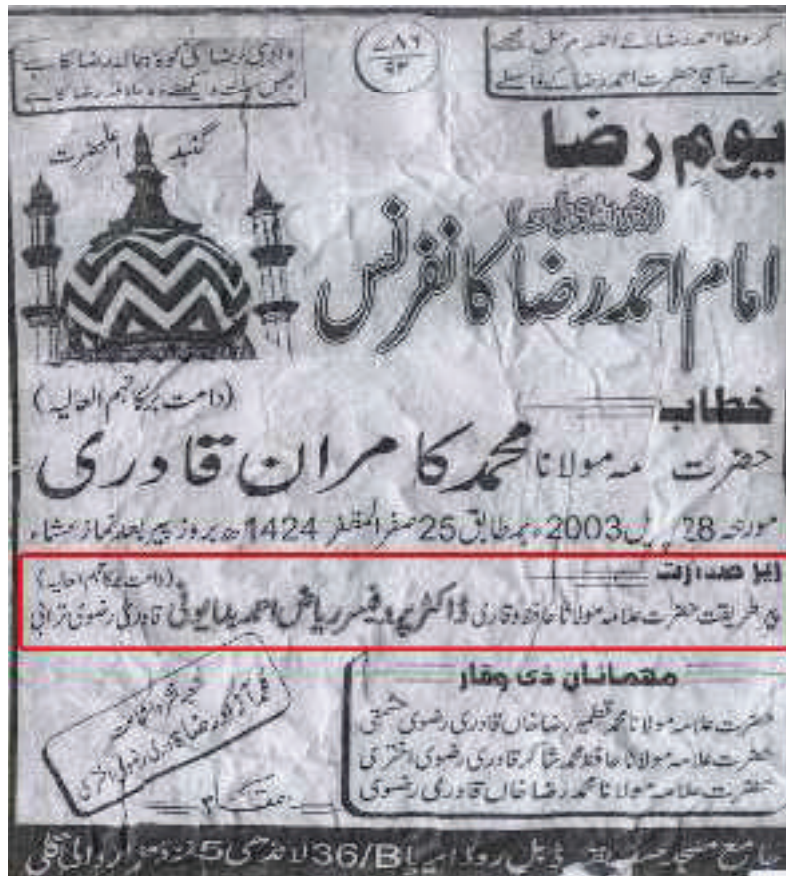 کر عطا احمد رضائے احمد مرسل مجھے
میرے آقا حضرت احمد رضا کے واسطے
۷۸۶
۹۲
وادی رضا کی کوہ ہمالہ رضا کا ہے
جس سمت دیکھئے وہ علاقہ رضا کا ہے
گنبد اعلیٰحضرت
یوم رضا
امام احمد رضا کانفرنس
خطاب
(دامت برکاتہم العالیہ)
حضرت علامہ مولانا محمد کامران قادری
مورخہ 28 اپریل 2003ء بمطابق 25 صفر المظفر 1424ھ بروز پیر بعد نماز عشاء
زیر صدارت
(دامت برکاتہم العالیہ)
پیر طریقت حضرت علامہ مولانا حافظ وقاری ڈاکٹر پروفیسر ریاض احمد بدایونی قادری رضوی ترابی
مہمانان ذی وقار
حضرت علامہ مولانا محمد تطہیر رضا خاں قادری رضوی حشمتی
حضرت علامہ مولانا حافظ محمد شاکر قادری رضوی اختری
حضرت علامہ مولانا محمد رضا خاں قادری رضوی
رضا قادری رضوی اختری
جامع مسجد ڈبل روڈ ایریا 36/B لانڈھی 5 مزار والی گلی